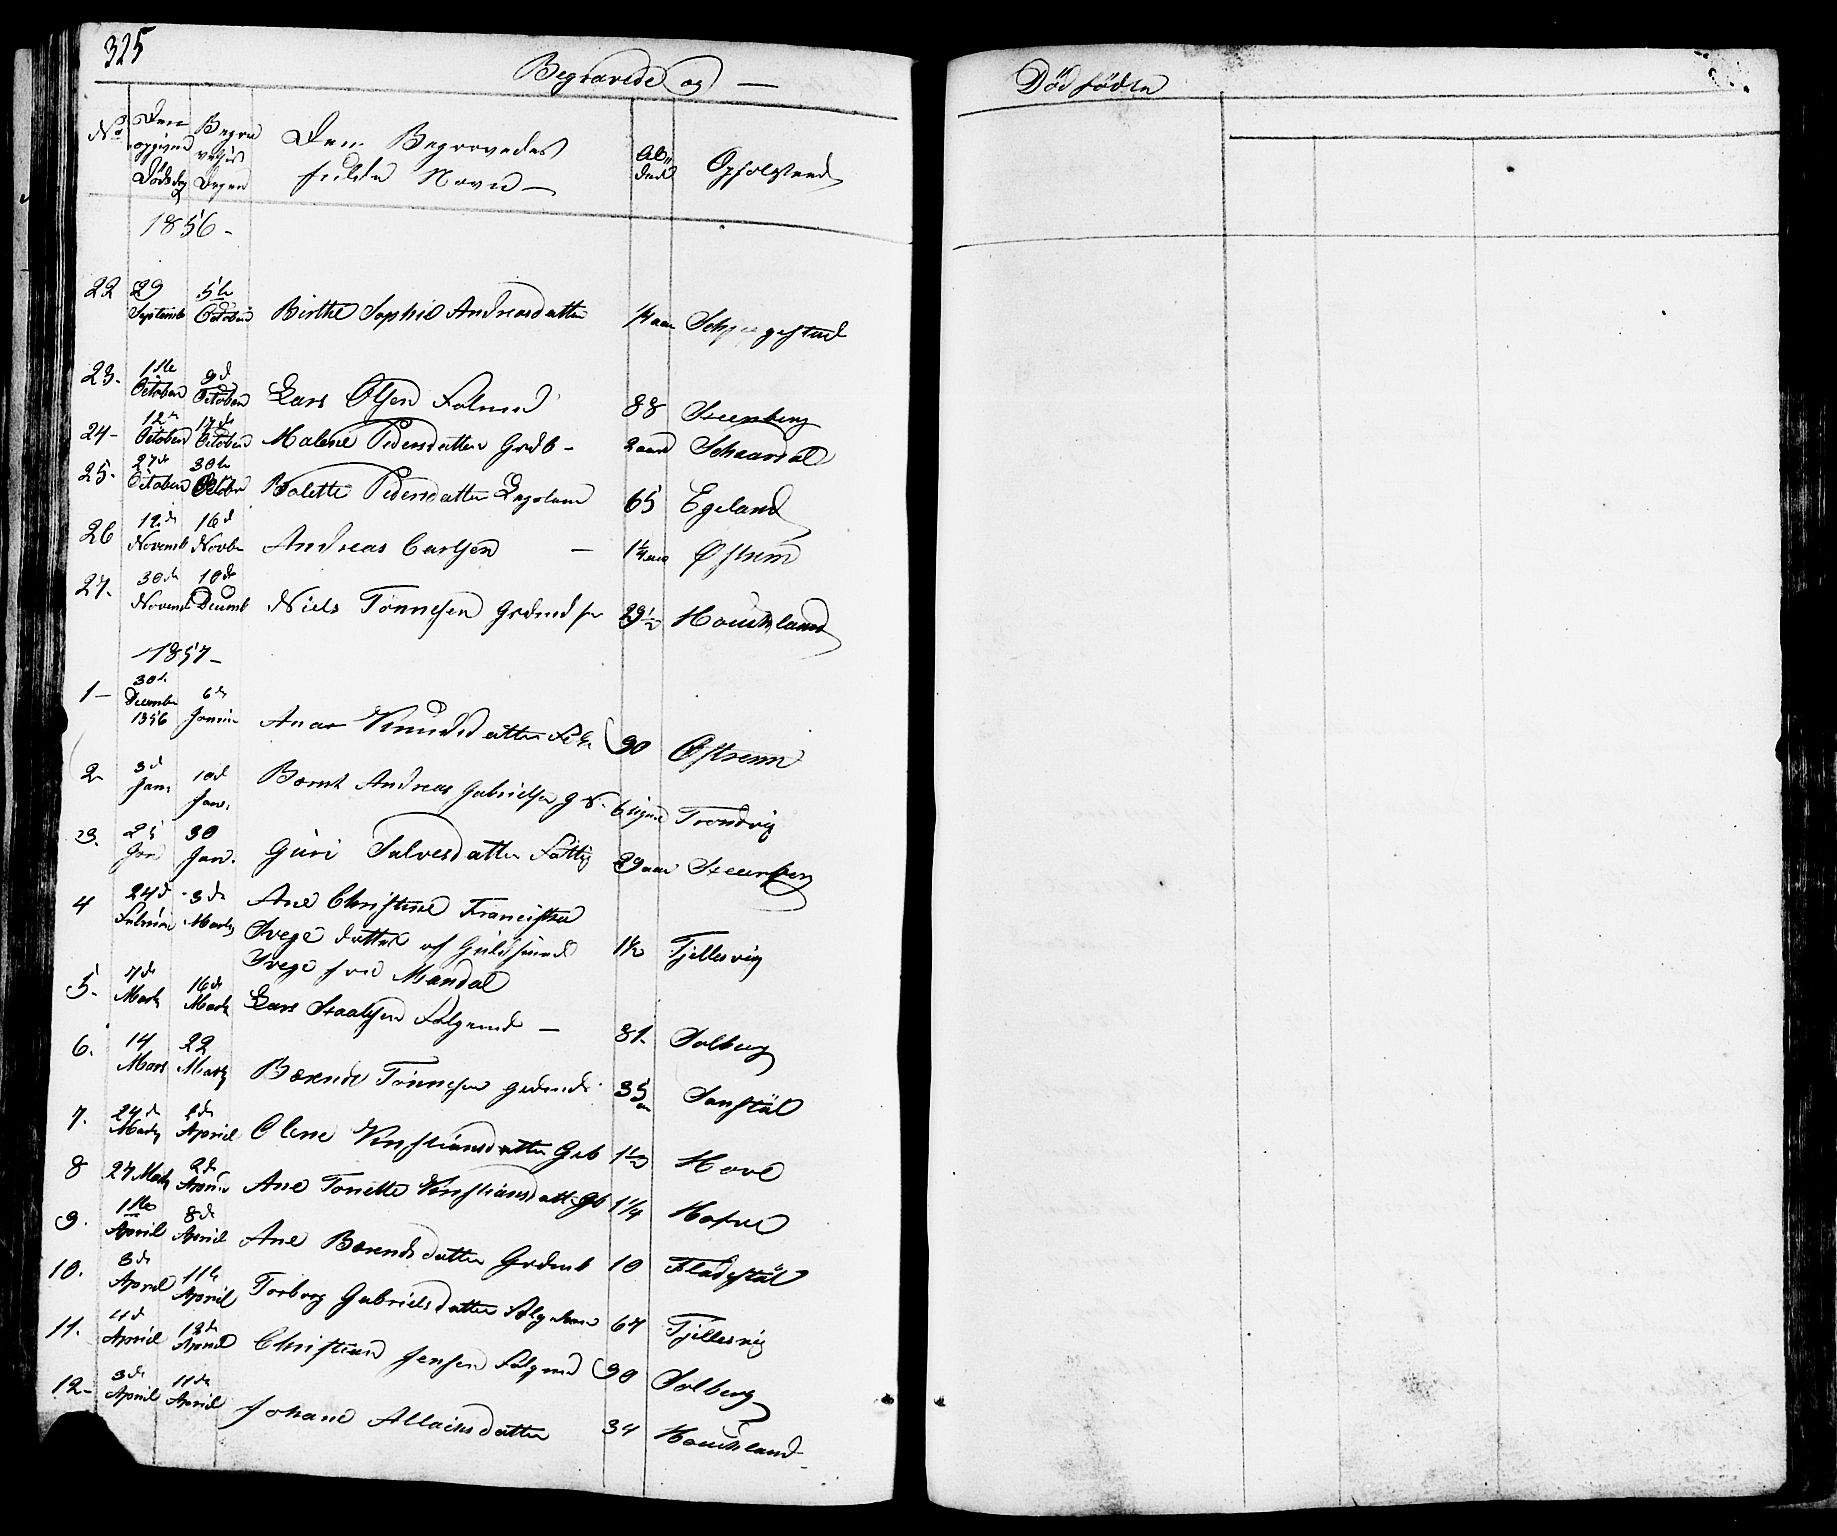 325
Begravede og — Dødfødte
No Den opgivne Dödsdag Begravelses Dagen Den Begravedes fulde Navn — Alderen Opholdsted
1856 -
22 29 Septembr 5te October Birthe Sophie Andreasdatter 1/4 aar
23. 1ste October 9d October Lars Olsen 88 Steenberg
24- 12te October 17de October Malene Pedersdatter Grdb - 2 aar Schaardal
25. 27de October 30te Octobr Bolette Pedersdatter 65 Egeland
26 12de Novemb 16d Novbr Andreas Carlsen — 1 1/4 aar Østrem
27. 30de Novemb 10de Decemb Niels Tønnesen 29 1/2 Houchland
1857 -
1- 30te Decembr 1856 6te Januar Anar Knudsdatter 90 Østrem
2 3d Jan. 10d Jan. Bernt Andreas Gabrielsen 6 uger Trondvig
3. 25 Jan 30 Jan. Guri Salvesdatter Fattig 29 aar Steenberg
4 24d Februar 3de Marts Ane Christine Francisca
Svege datter af
Svege fra Mandal 1 1/2 Tjellesvig
5. 7de Marts 16de Marts Lars Staalesen — 81- Solberg
6. 14 Mars 22 Marts Bærende Tønnesen 35 aar Sanstöl
7. 24de Marts 2de April Olene Kristiansdatter Grb 1 1/2 Hove
8 27 Marts 2de April Ane Tonette Kristiansdatter Gb 1 1/4 Hofve
9. 1ste April 8de April Ane Bærendsdatter 10 Fladestöl
10. 3de April 11te April Torborg Gabrielsdatter 67 Tjellesvig
11. 11d April 18de April Christian Jensen 90 Solberg
12- 3de April 11te April Johane Allachsdatter 34 Houchland-